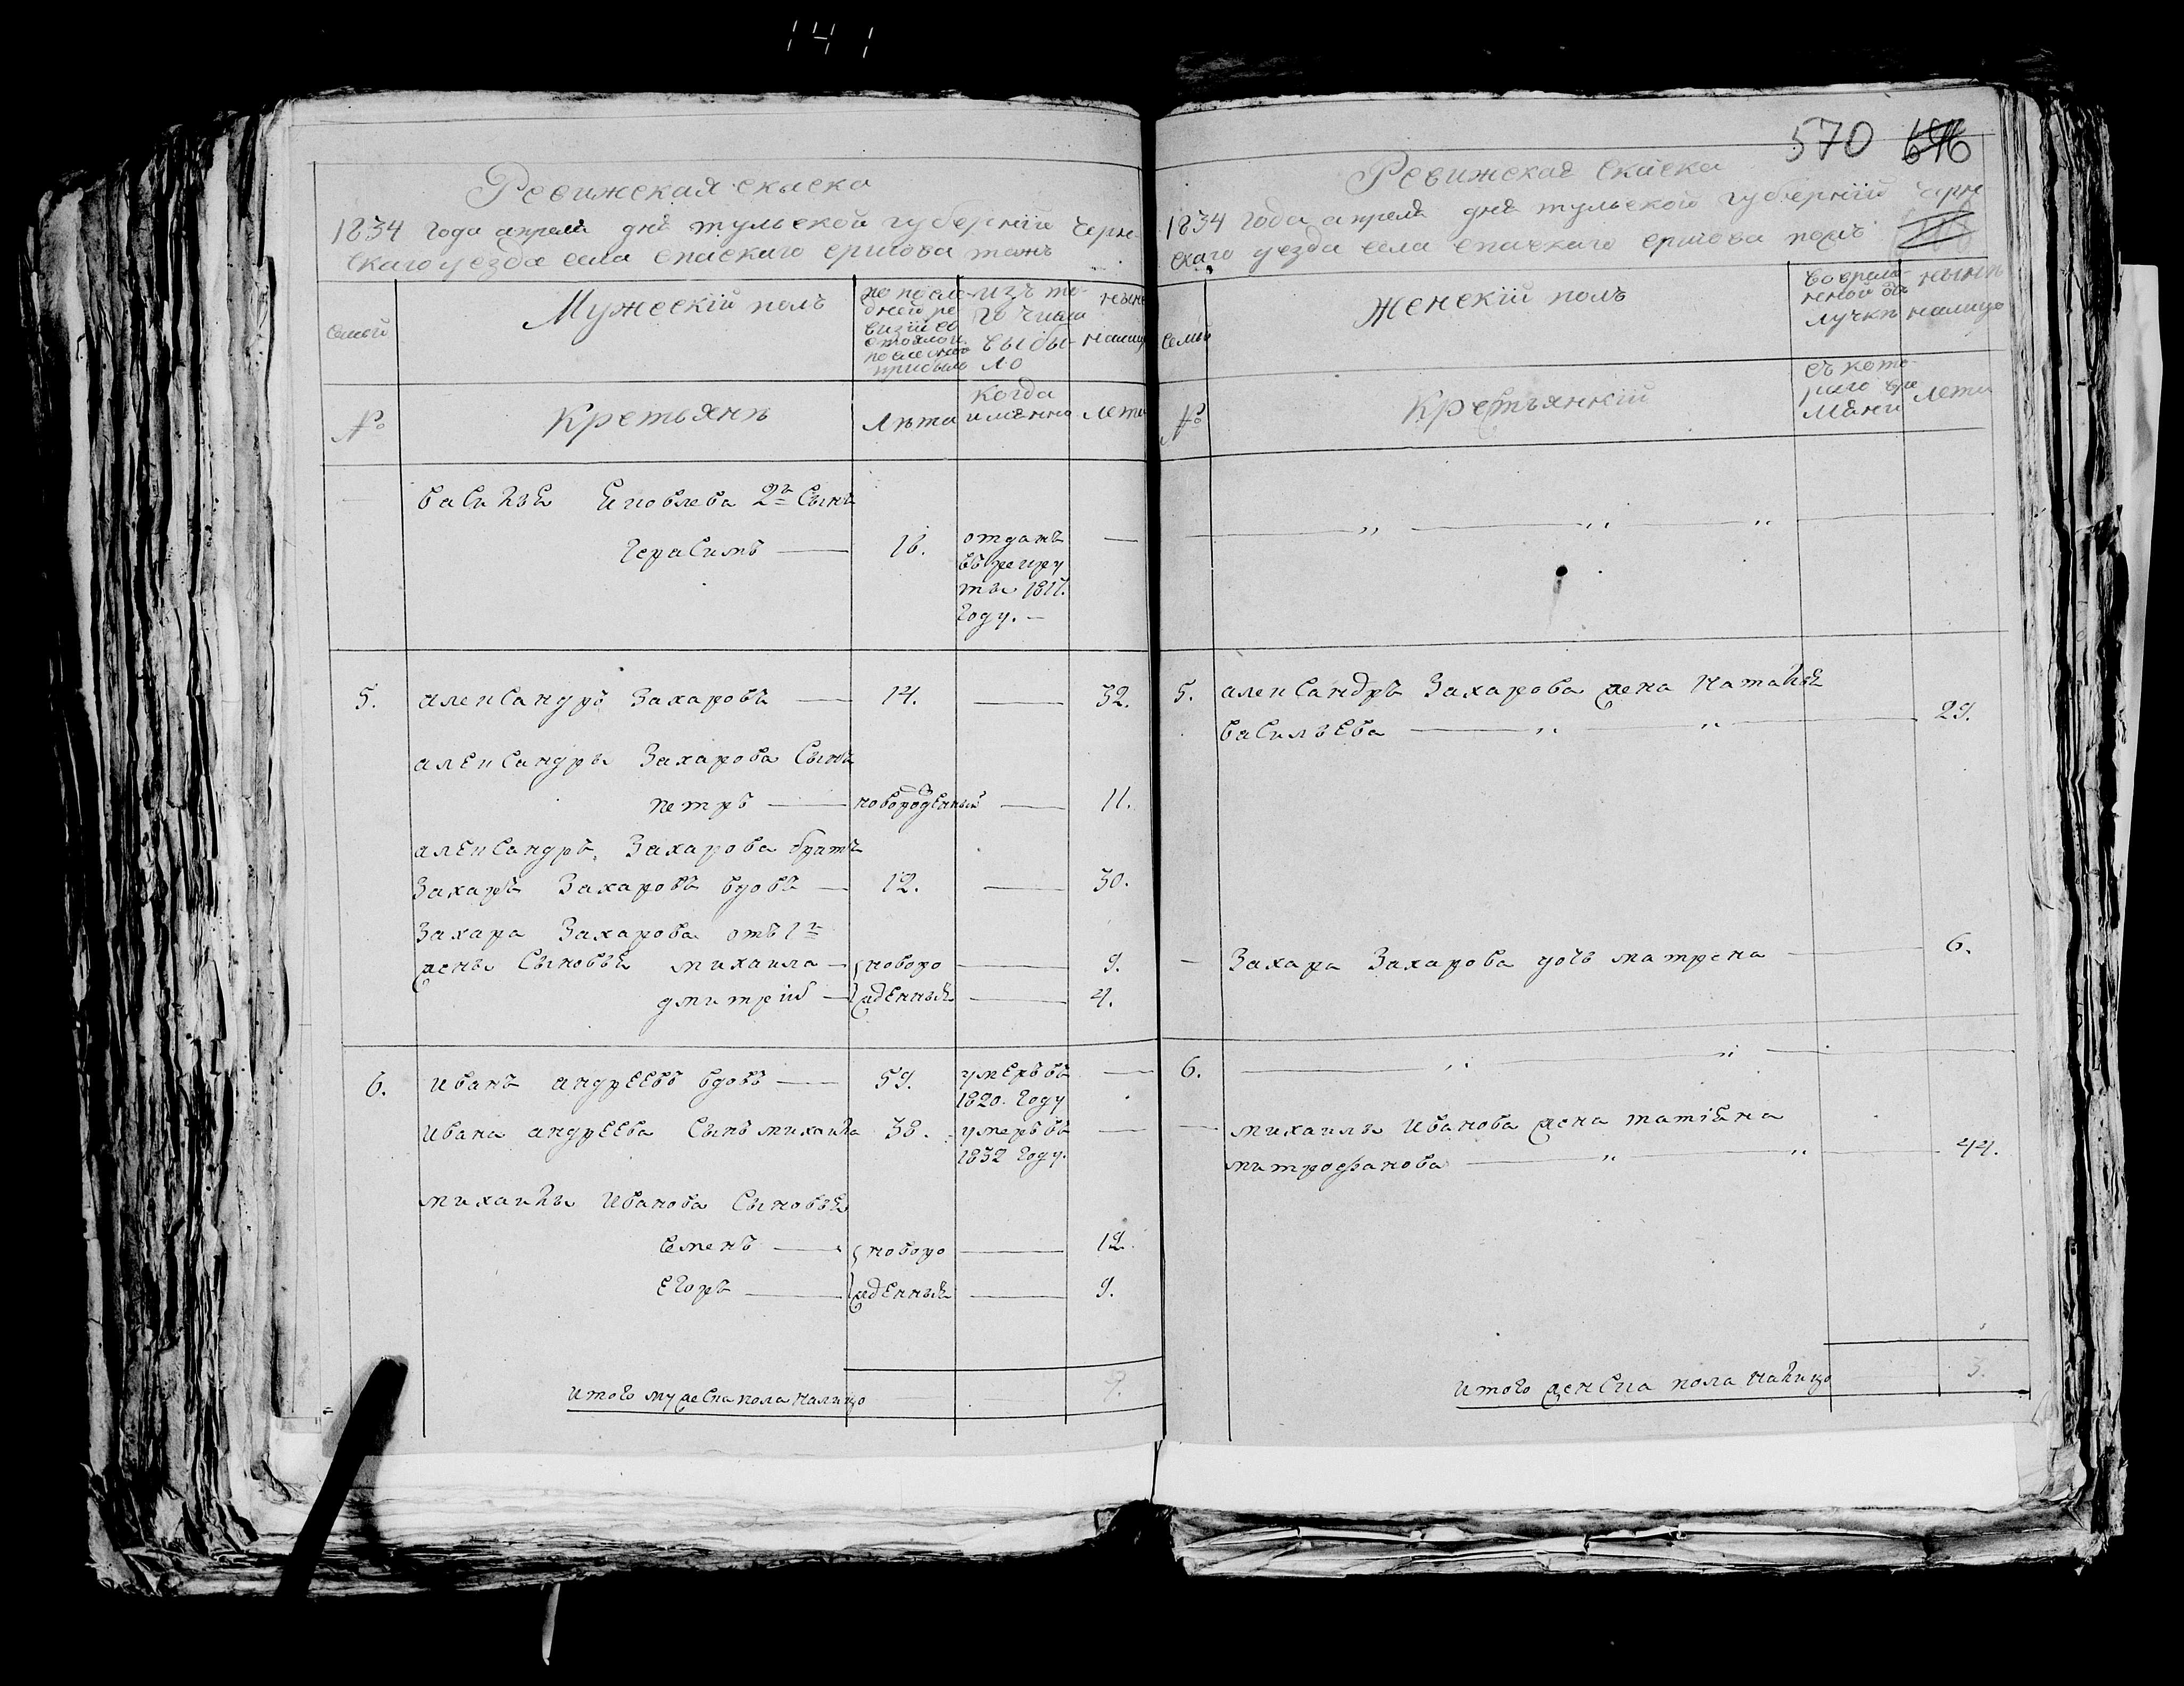 141
570 696
Ревижская скаска
1834 года апреля дня тульской губернiи черн-
скаго уезда села спаскаго ершова тожъ
семьи
Мужескiй полъ
по после-
дней ре
визiи со
стояло и
после того
прибыло
изъ то-
го числа
выбы-
ло
ныне
налицо
№
Кретьянъ
Лѣта
когда
имянно
лета
василья Яковлева 2й Сынъ
Герасимъ — 16. отданъ —
въ рекру
ты 1817.
Году. —
5. Александръ Захаровъ — 14. — 32.
александра Захарова Сынъ
петръ — новорожденный — 11.
александра Захарова братъ
Захаръ Захаровъ вдовъ — 12. — 30.
Захара Захарова отъ 1й
жены Сыновья михаила — новоро — 9.
дмитрiй — жденныя — 4.
6. иванъ андреевъ вдовъ — 59. умеръ въ —
1820. Году
ивана андреева Сынъ михаила 38. умеръ въ —
1832 Году.
михаилы иванова Сыновья
семенъ — новоро — 12.
Егоръ — жденныя — 9.
итого мужеска пола налицо 7.
Ревижская скаска
1834 года апреля дня тульской губернiй черн
скаго уезда села спаскаго ершова тожъ
семьи
Женскiй полъ
во време-
нной от
лучки
ныне
налицо
№
Кретьянкiй
съ кото-
раго вре
мени
лета
— „ — „ — „ —
5. александра Захарова жена наталья
васильева — „ — „ — 29.
— Захара Захарова дочь матрена — 6.
6. — „ — „ —
— михаилы иванова жена татiяна
митрофанова — „ — „ — 44.
итого женска пола налицо 3.